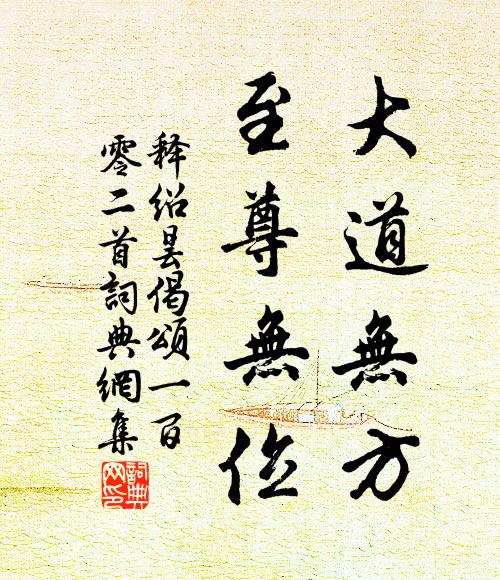 大道無方
至尊無位
釋紹曇偈頌一百
零二首詞典網集
詞典
网印